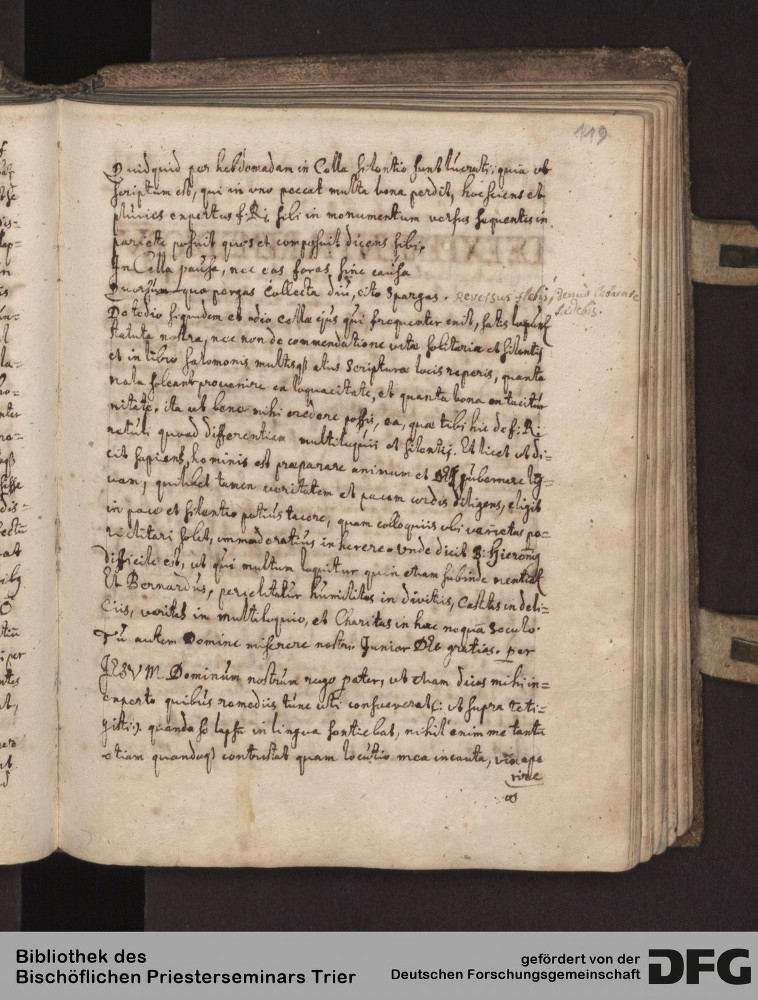 119
Quidquid per hebdomadam in Cella silentio sunt lucrati; quia ut
scriptum est, qui in uno peccat multa bona perdit, hoc sciens et
pluries expertus f. Ri. sibi in monumentum versus sequentes in
pariete posuit quos et composuit dicens sibi,
In Cella pausa, nec eas foras sine causa
Quorsum quo pergas Collecta diu, cito Spargas. reversus flebis, denuo
sedebis.
De tedio siquidem et odio cellae ejus qui frequenter exit, satis
statuta nostra, nec non de commendatione vitae solitariae et silentij
et in libro Salomonis multisq alijs Scripturae locis reperis, quanta
mala soleant provenire ex loquacitate, et quanta bona ex taciturnitate, ita ut bene mihi credere possis, ea, quae tibi hic de f. Ri.
retuli quoad differentiam multiloquij et silentij. Et licet ut di=
cit sapiens, hominis est praeparare animum et Dei gubernare lin=
guam, quilibet tamen veritatem et pacem cordis diligens, eligit
in pace et silentio potius tacere, quam colloquiis ubi veritas pe=
riclitari solet, immoderatius inherere. Unde dicit B: Hieronimus
difficile est, ut qui multum loquitur quin etiam subinde mentiatur
Et Bernardus, periclitatur humilitas in divitiis, Castitas in deli=
Ciis, veritas in multiloquio, et Charitas in hoc nequam Seculo.
Tu autem Domine miserere nostri. Junior Deo gratias. per
JESUM Dominum nostrum rogo pater, ut etiam dicas mihi in=
experto quibus remediis tunc uti consueverat (: ut supra teti=
gisti :) quando se lapsum in lingua sentiebat, nihil enim me tantum
etiam quandoq contristat quam locutio mea incauta,
os
Bibliothek des
Bischöflichen Priesterseminars Trier
gefördert von der
Deutschen Forschungsgemeinschaft
DFG